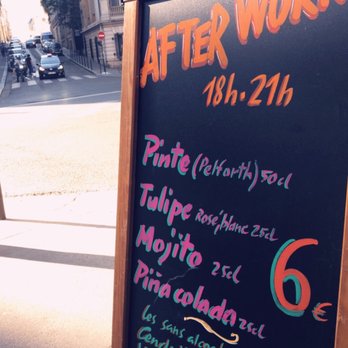 AFTER WORK
18h.21h
Pinte (Pelforth) 50cl
Tulipe Rosé, blanc 25cl
Mojito 25cl
Piña colada 25cl
6€
Les sans alcool